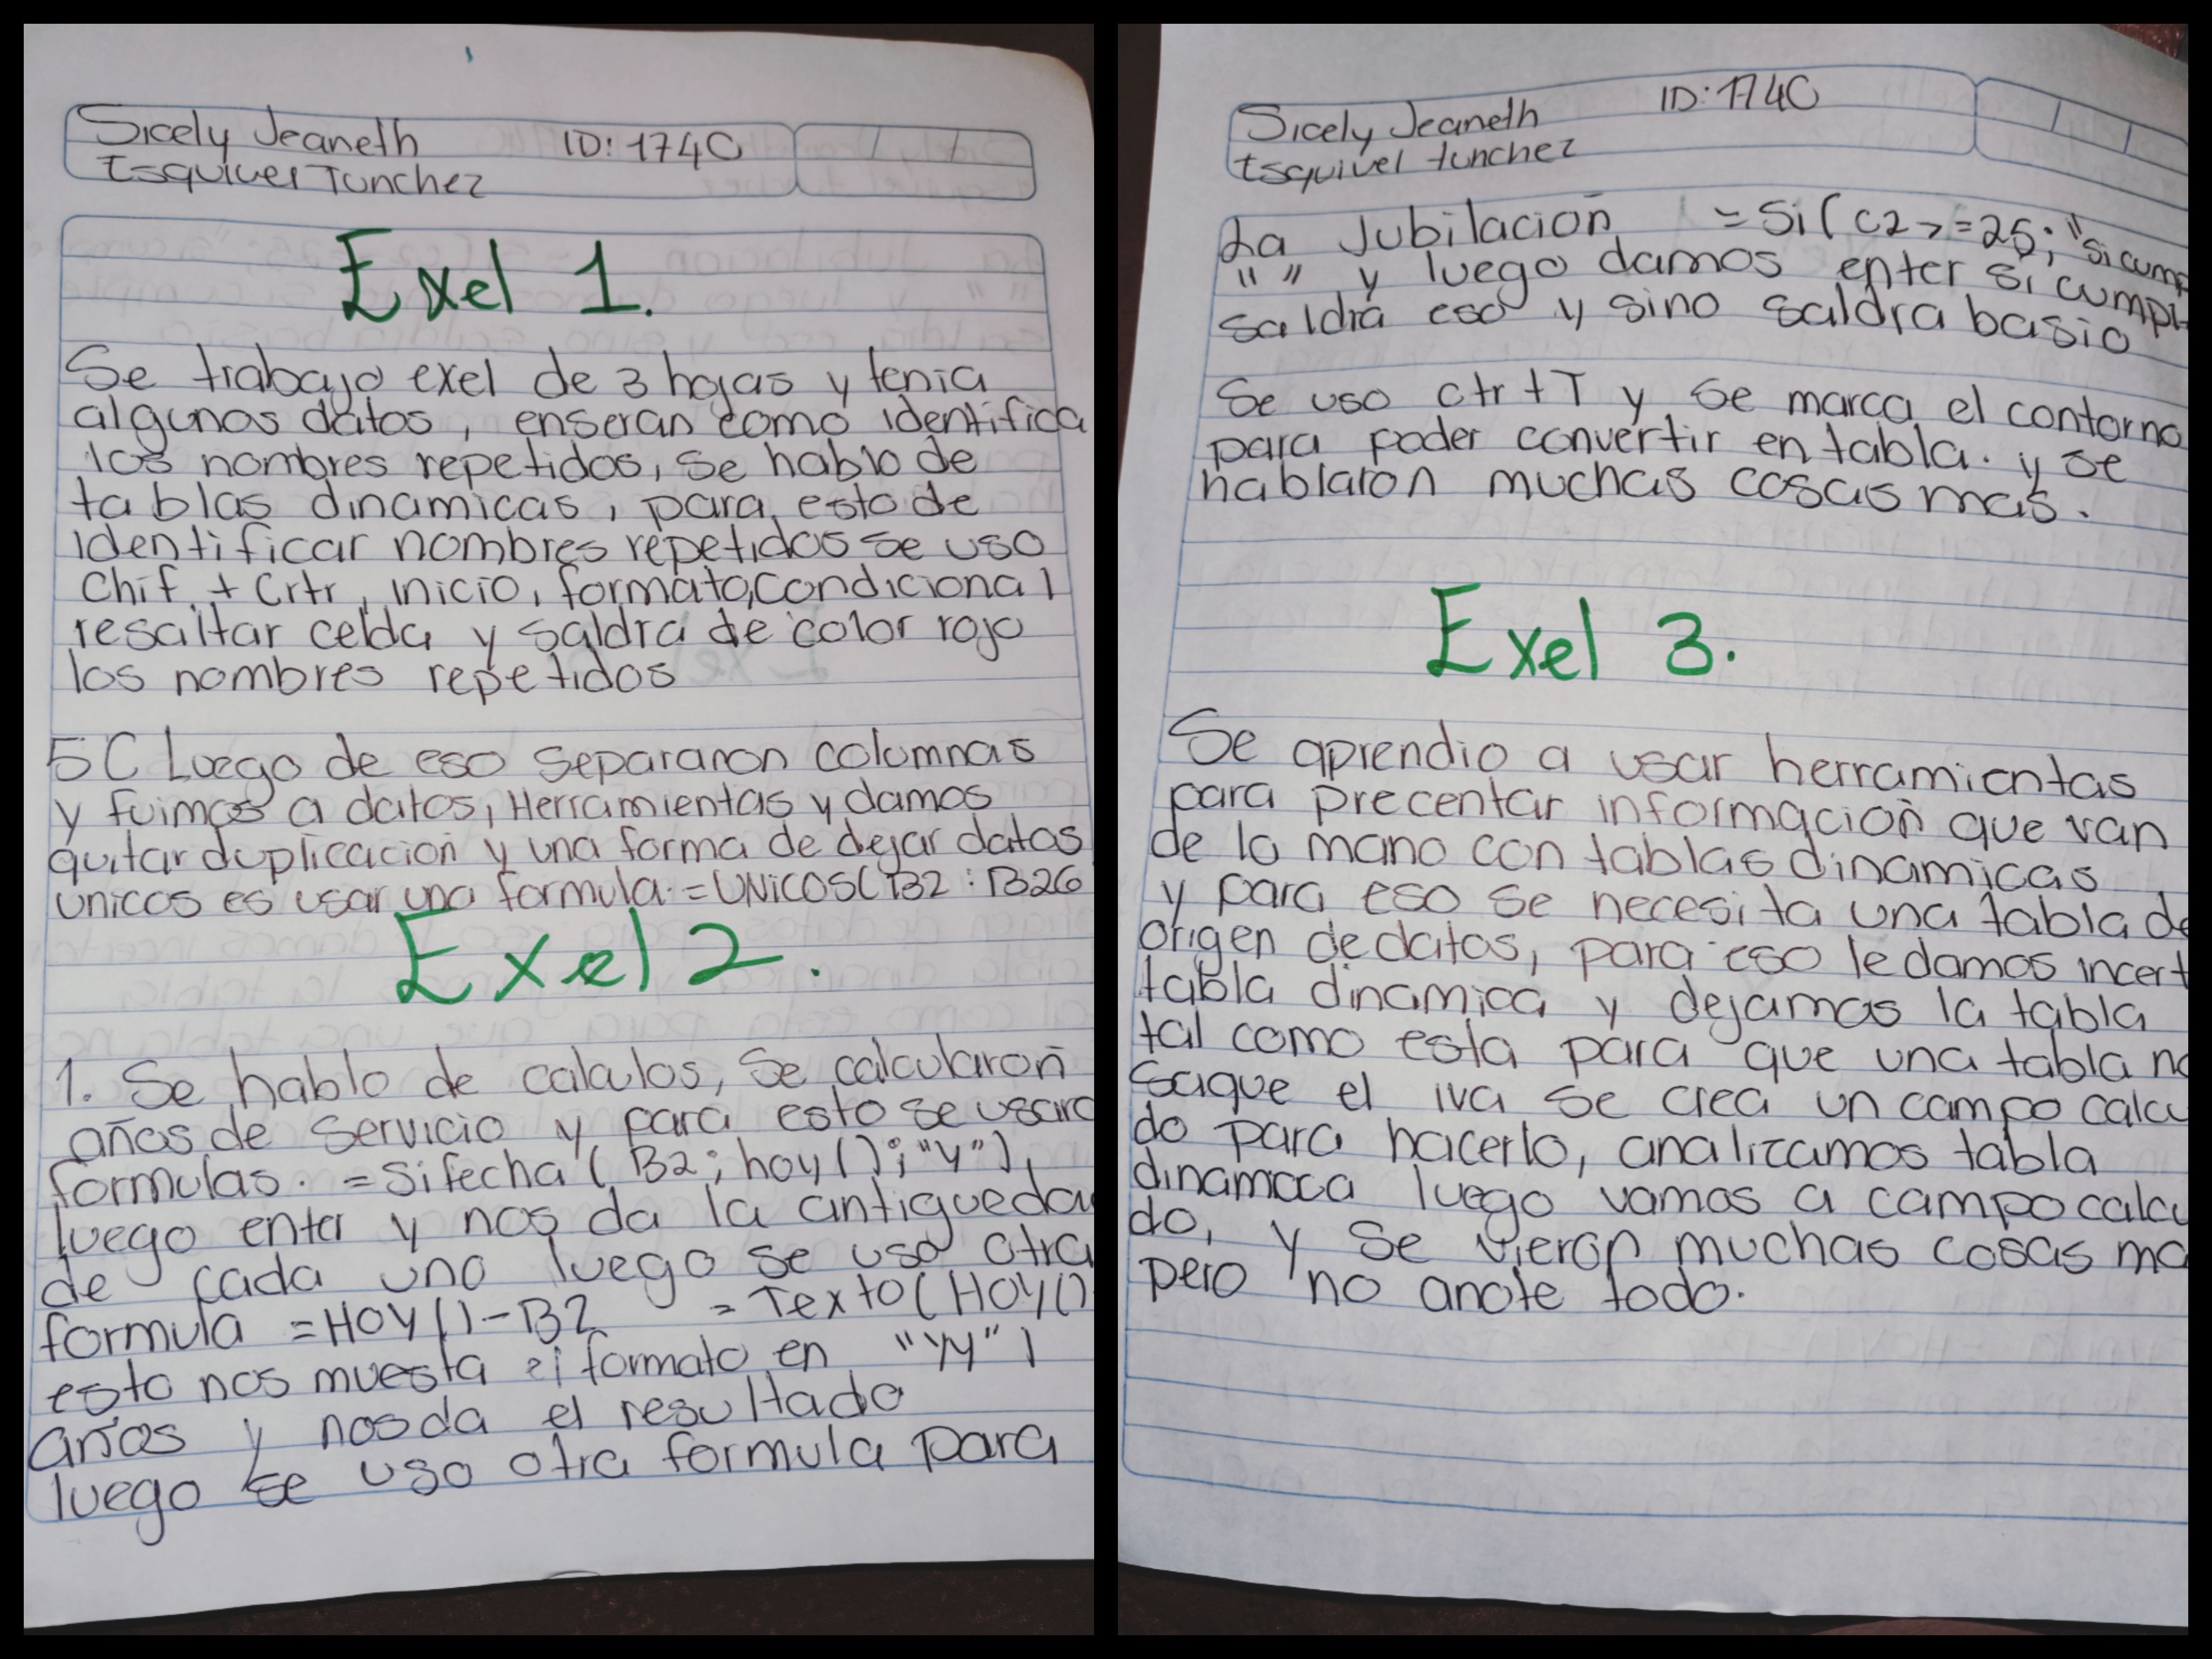 Sicely Jeaneth ID: 1740
Esquivel Tunchez
Exel 1.
Se trabajo exel de 3 hojas y tenia
algunos datos, enseran como identifica
los nombres repetidos, se hablo de
tablas dinamicas, para esto de
identificar nombres repetidos se uso
Chif + Crtr, inicio, formato, condicional
resaltar celda y saldra de color rojo
los nombres repetidos
5C Luego de eso separaron columnas
y fuimos a datos, Herramientas y damos
quitar duplicacion y una forma de dejar datos
unicos es usar una formula. =UNiCOS(B2:B26
Exel 2.
1. Se hablo de calculos, Se calcularon
años de servicio y para esto se usaro
formulas. =Sifecha(B2; hoy();"Y"),
luego enter y nos da la antiguedad
de cada uno luego se uso otra
formula =HOY()-B2 =Texto(HOY()
esto nos muesta el formato en "yy")
años y nos da el resultado
luego se uso otra formula para
Sicely Jeaneth ID: 1740
Esquivel tunchez
La Jubilacion =Si(C2>=25; "si cump
"" y luego damos enter si cumpl
saldra eso y sino saldra basio
Se uso ctr+T y se marca el contorno
para poder convertir en tabla. y se
hablaron muchas cosas mas.
Exel 3.
Se aprendio a usar herramientas
para precentar informacion que van
de lo mano con tablas dinamicas
y para eso se necesita una tabla de
origen de datos, para eso le damos incert
tabla dinamica y dejamos la tabla
tal como esta para que una tabla no
saque el iva se crea un campo calcu
do para hacerlo, analizamos tabla
dinamica luego vamos a campo calcu
do, y se vieron muchas cosas ma
pero no anote todo.